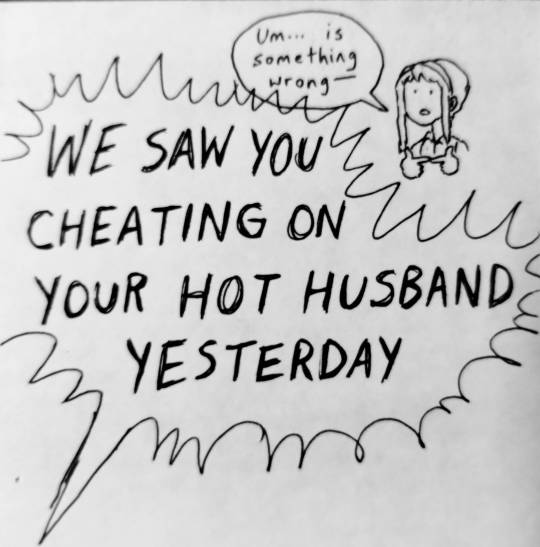 Um... is
something
wrong—
WE SAW YOU
CHEATING ON
YOUR HOT HUSBAND
YESTERDAY